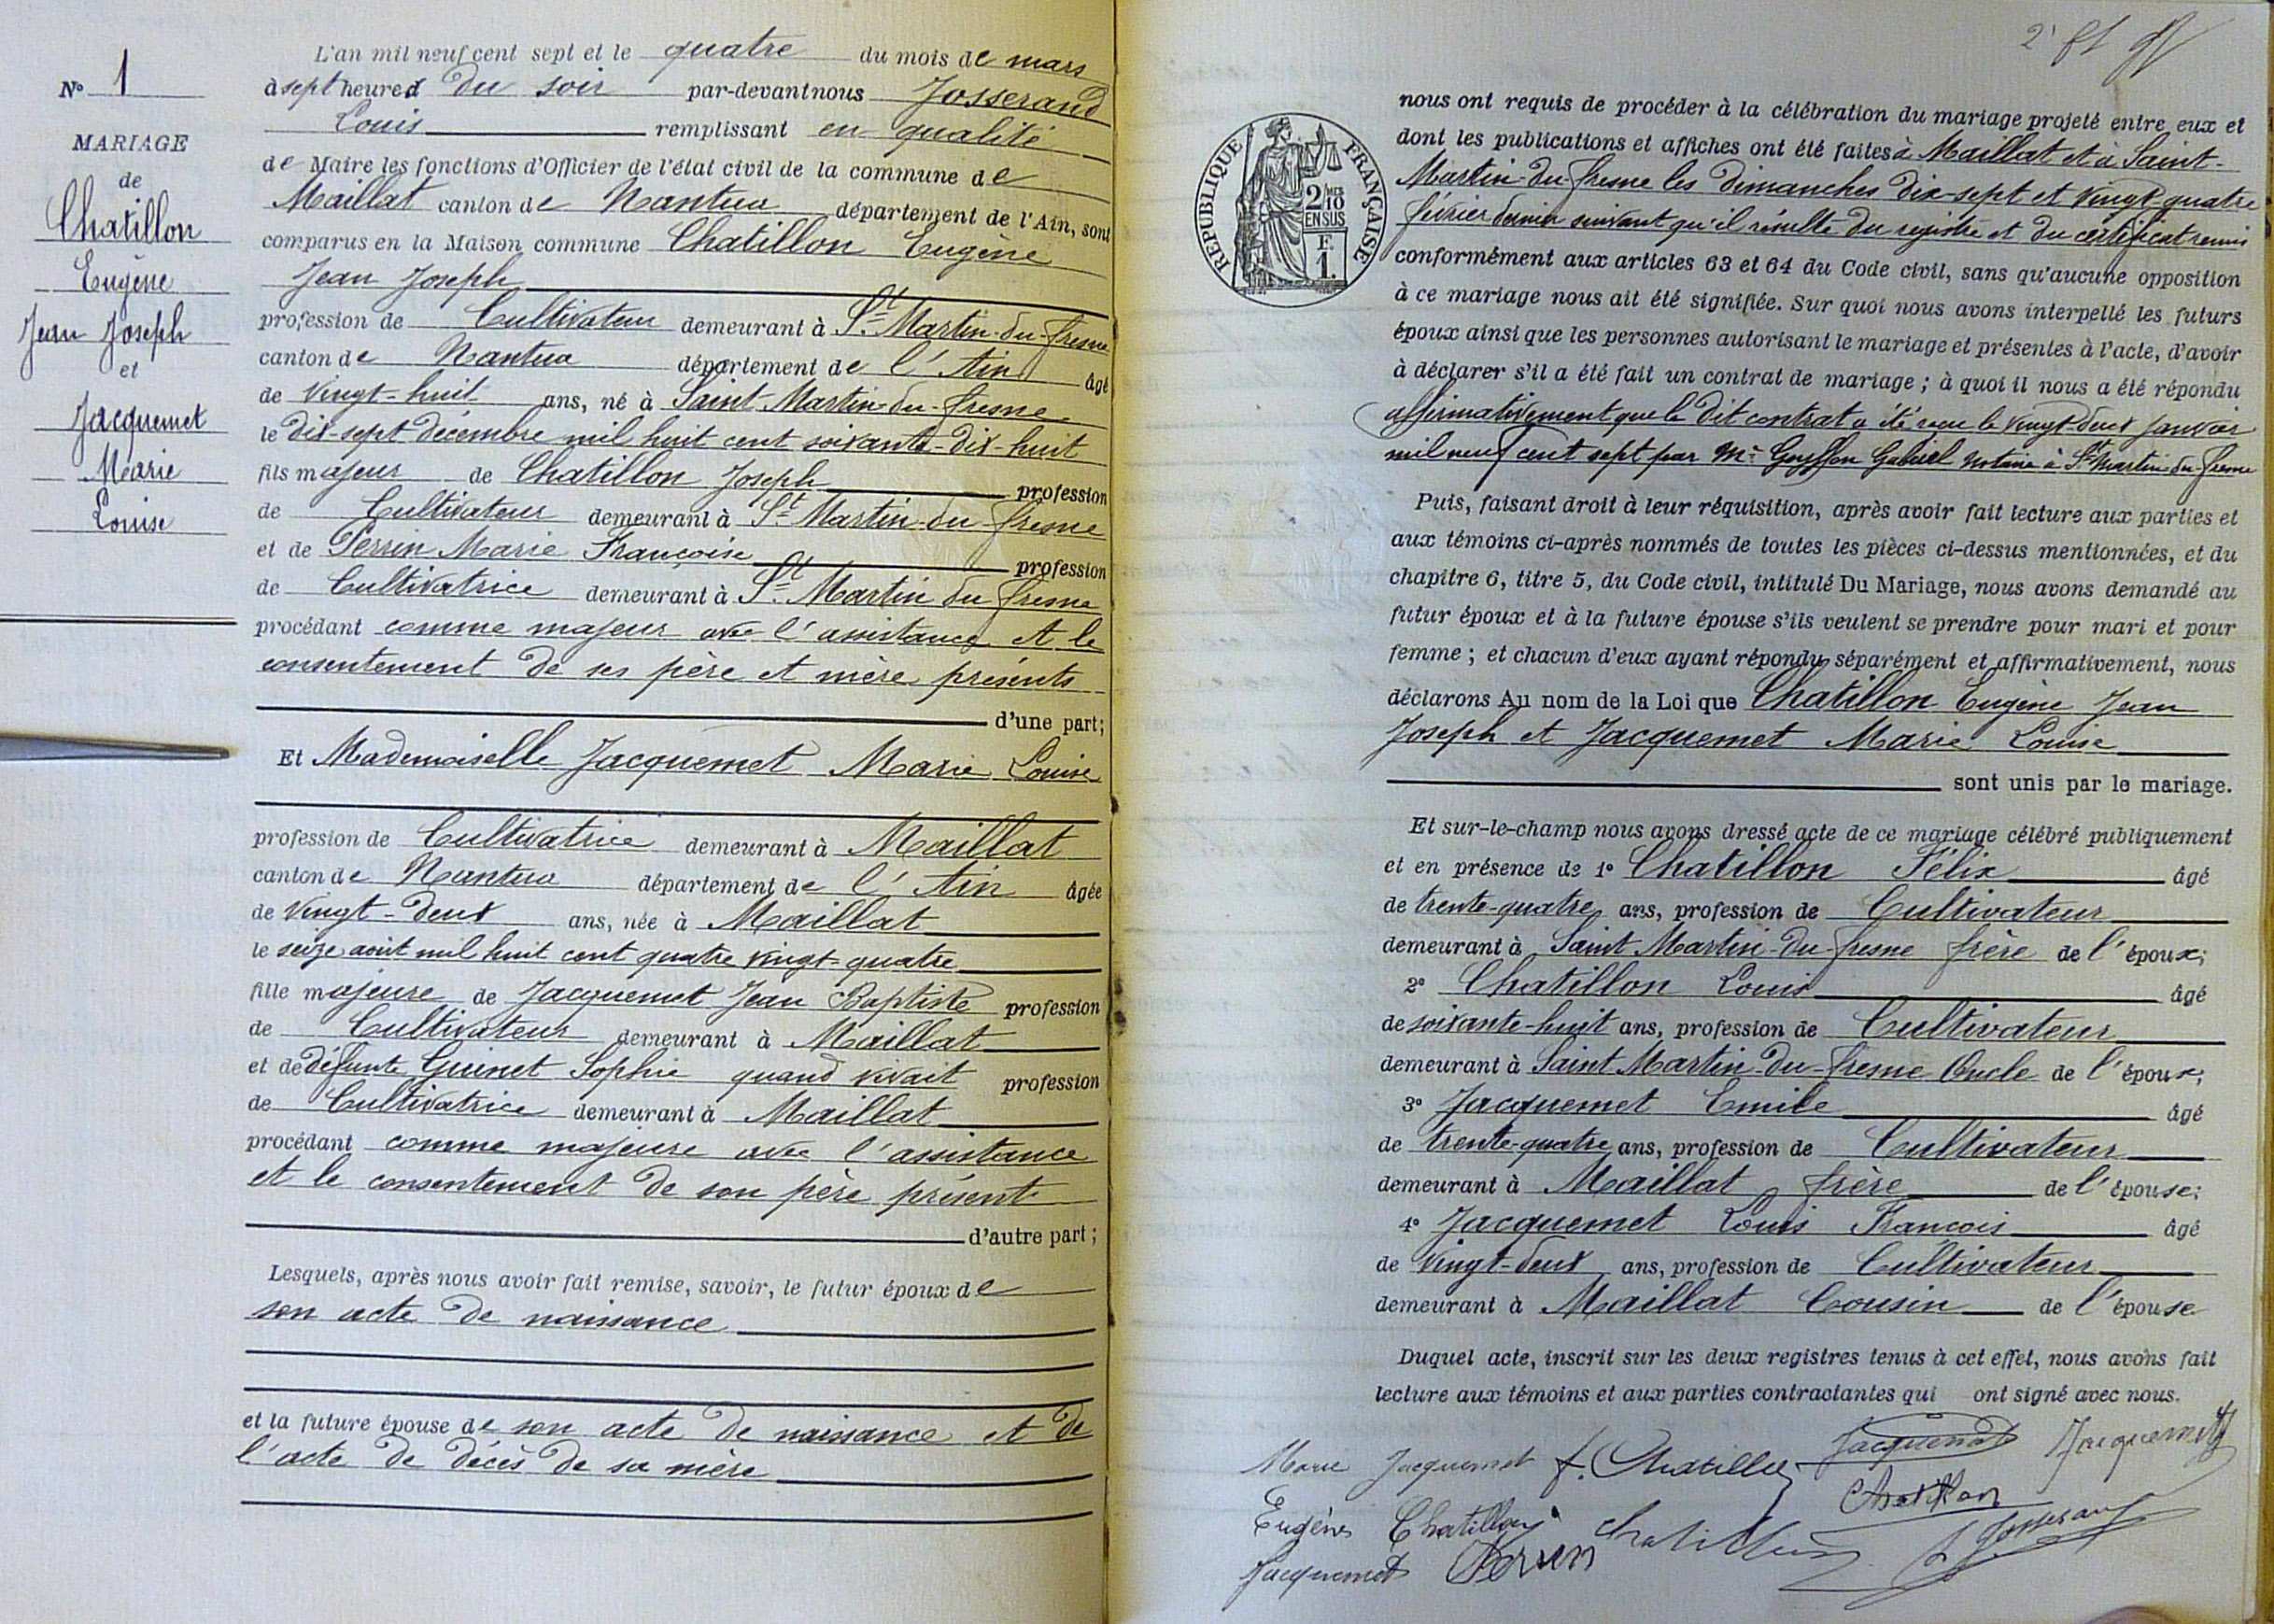 N° 1
MARIAGE
de
Chatillon
Eugène
Jean Joseph
et
Jacquemet
Marie
Louise
L'an mil neuf cent sept et le quatre du mois de mars
à sept heures du soir par-devant nous Josserand
Louis remplissant en qualité
de Maire les fonctions d'Officier de l'état civil de la commune de
Maillat canton de Nantua département de l'Ain, sont
comparus en la Maison commune Chatillon Eugène
Jean Joseph
profession de Cultivateur demeurant à St Martin-du-fresne
canton de Nantua département de l'Ain âgé
de vingt-huit ans, né à Saint Martin-du-fresne
le dix-sept décembre mil huit cent soixante-dix-huit
fils majeur de Chatillon Joseph profession
de Cultivateur demeurant à St Martin-du-fresne
et de Perrin Marie Françoise profession
de Cultivatrice demeurant à St Martin du fresne
procédant comme majeur avec l'assistance et le
consentement de ses père et mère présents
d'une part;
Et Mademoiselle Jacquemet Marie Louise
profession de Cultivatrice demeurant à Maillat
canton de Nantua département de l'Ain âgée
de vingt-deux ans, née à Maillat
le seize août mil huit cent quatre vingt-quatre
fille majeure de Jacquemet Jean Baptiste profession
de Cultivateur demeurant à Maillat
et de défunte Guinet Sophie quand vivait profession
de Cultivatrice demeurant à Maillat
procédant comme majeure avec l'assistance
et le consentement de son père présent
d'autre part;
Lesquels, après nous avoir fait remise, savoir, le futur époux de
son acte de naissance
et la future épouse de son acte de naissance et de
l'acte de décès de sa mère
RÉPUBLIQUE FRANÇAISE
2 MES
10
EN SUS
F.
1.
nous ont requis de procéder à la célébration du mariage projeté entre eux et
dont les publications et affiches ont été faites à Maillat et à Saint-
Martin-du-fresne les dimanches dix-sept et vingt quatre
février dernier suivant qu'il résulte du registre et du certificat remis
conformément aux articles 63 et 64 du Code civil, sans qu'aucune opposition
à ce mariage nous ait été signifiée. Sur quoi nous avons interpellé les futurs
époux ainsi que les personnes autorisant le mariage et présentes à l'acte, d'avoir
à déclarer s'il a été fait un contrat de mariage; à quoi il nous a été répondu
affirmativement que le dit contrat a été reçu le vingt-deux janvier
mil neuf cent sept par Me Gabriel notaire à St Martin du fresne
Puis, faisant droit à leur réquisition, après avoir fait lecture aux parties et
aux témoins ci-après nommés de toutes les pièces ci-dessus mentionnées, et du
chapitre 6, titre 5, du Code civil, intitulé Du Mariage, nous avons demandé au
futur époux et à la future épouse s'ils veulent se prendre pour mari et pour
femme; et chacun d'eux ayant répondu séparément et affirmativement, nous
déclarons Au nom de la Loi que Chatillon Eugène Jean
Joseph et Jacquemet Marie Louise
sont unis par le mariage.
Et sur-le-champ nous avons dressé acte de ce mariage célébré publiquement
et en présence de 1° Chatillon Félix âgé
de trente-quatre ans, profession de Cultivateur
demeurant à Saint Martin-du-fresne frère de l'époux;
2° Chatillon Louis âgé
de soixante-huit ans, profession de Cultivateur
demeurant à Saint Martin-du-fresne Oncle de l'époux;
3° Jacquemet Emile âgé
de trente-quatre ans, profession de Cultivateur
demeurant à Maillat frère de l'épouse;
4° Jacquemet Louis François âgé
de vingt-deux ans, profession de Cultivateur
demeurant à Maillat Cousin de l'épouse
Duquel acte, inscrit sur les deux registres tenus à cet effet, nous avons fait
lecture aux témoins et aux parties contractantes qui ont signé avec nous.
Marie Jacquemet f. Chatillon Jacquemet Jacquemet
Eugène Chatillon Chatillon Chatillon Josserand
Jacquemet Perrin